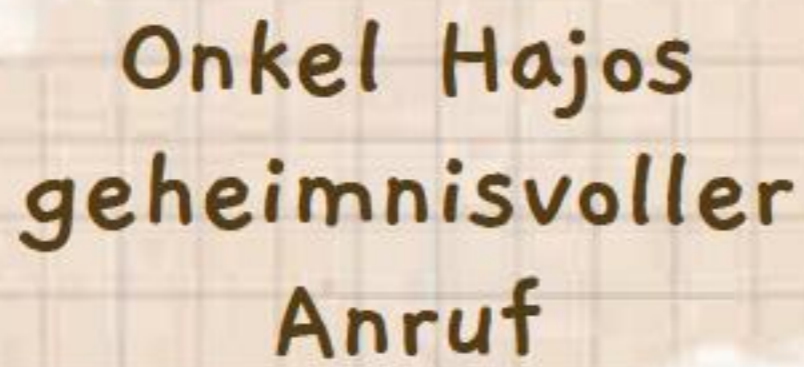 Onkel Hajos
geheimnisvoller
Anruf